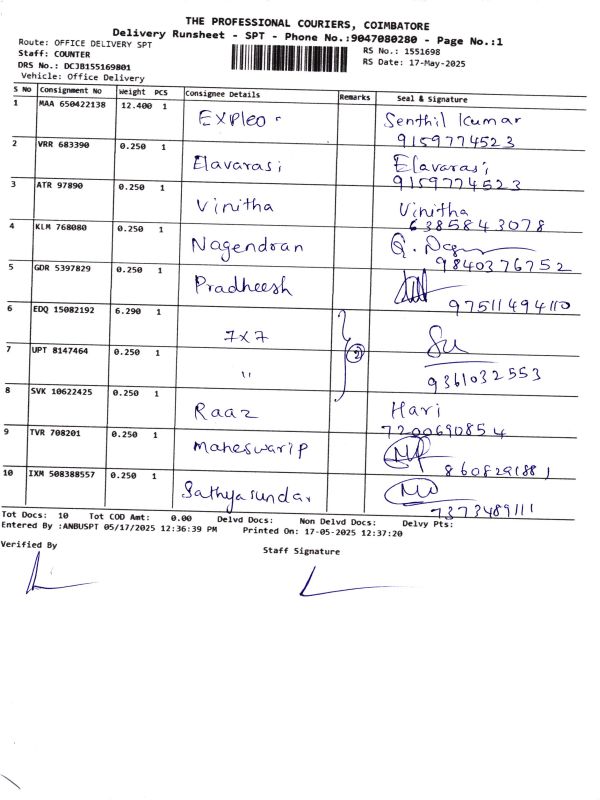 THE PROFESSIONAL COURIERS, COIMBATORE
Delivery Runsheet - SPT - Phone No.:9047080280 - Page No.:1
Route: OFFICE DELIVERY SPT
Staff: COUNTER
DRS No.: DCJB155169801
Vehicle: Office Delivery
RS No.: 1551698
RS Date: 17-May-2025
S No Consignment No Weight PCS Consignee Details Remarks Seal & Signature
1 MAA 650422138 12.400 1 Expleo - Senthil Kumar
9159774523
2 VRR 683390 0.250 1 Elavarasi Elavarasi
9159774523
3 ATR 97890 0.250 1 Vinitha Vinitha
6385843078
4 KLM 768080 0.250 1 Nagendran
9840376752
5 GDR 5397829 0.250 1 Pradheesh
97511494110
6 EDQ 15082192 6.290 1 7x7
7 UPT 8147464 0.250 1 " 2
9361032553
8 SVK 10622425 0.250 1 Raaz Hari
7200690854
9 TVR 708201 0.250 1 maheswari p
8608291881
10 IXM 508388557 0.250 1 Sathyasundar.
7373489111
Tot Docs: 10 Tot COD Amt: 0.00 Delvd Docs: Non Delvd Docs: Delvy Pts:
Entered By :ANBUSPT 05/17/2025 12:36:39 PM Printed On: 17-05-2025 12:37:20
Verified By
Staff Signature